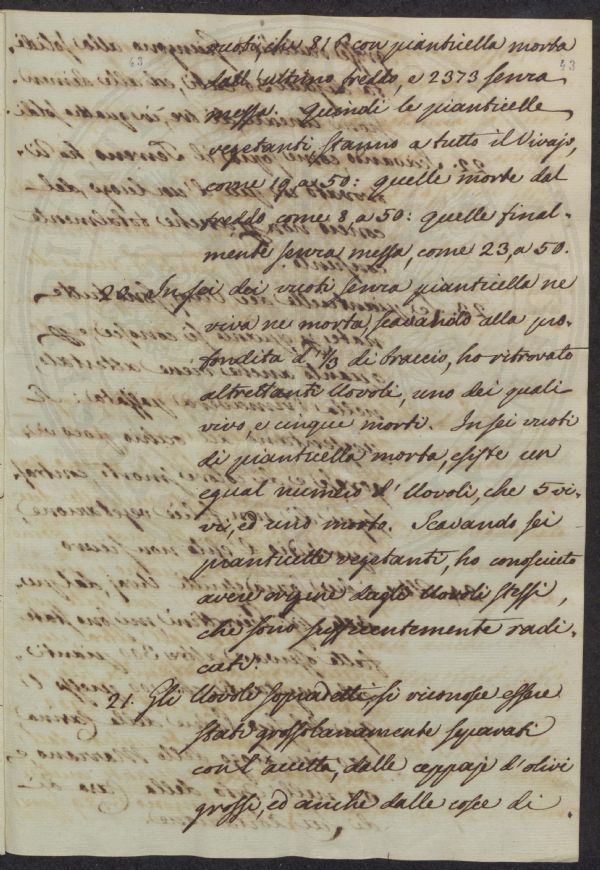 43
vuoti, che 816 con pianticella morta
dall'ultimo freddo, e 2373 senza
messa. Quindi le pianticelle
vegetanti stanno a tutto il Vivajo,
come 19 a 50: quelle morte dal
freddo come 8 a 50: quelle final-
mente senza messa, come 23, a 50.
In sei dei vuoti senza pianticella ne
viva ne morta, scavando alla pro-
fondita d'1/3 di braccio, ho ritrovato
altrettanti Uovoli, uno dei quali
vivo, e cinque morti. In sei vuoti
di pianticella morta, esiste un
egual numero d'Uovoli, che 5 vi-
vi, ed uno morto. Scavando sei
pianticelle vegetanti, ho conosciuto
avere origine dagli Uovoli stessi,
che sono sufficientemente radi-
cati.
21. Gli Uovoli sopradetti si riconosce essere
stati grossolanamente separati
con l'accetta, dalle ceppaje d'olivi
grossi, ed anche dalle cosce di